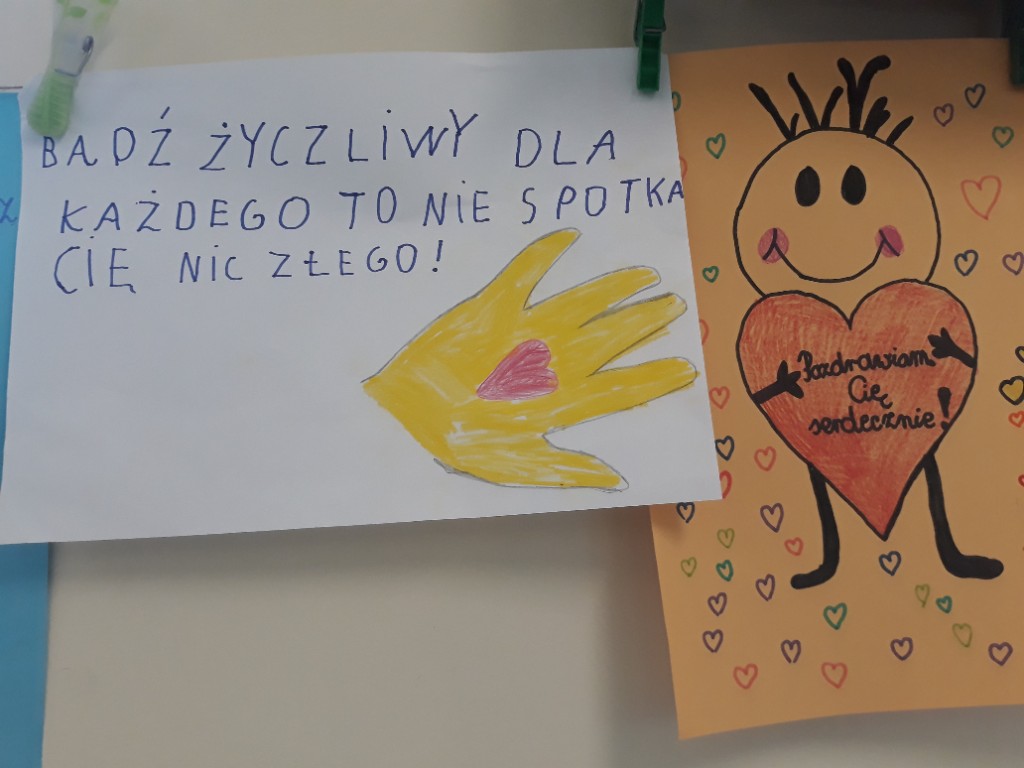 BĄDŹ ŻYCZLIWY DLA
KAŻDEGO TO NIE SPOTKA
CIĘ NIC ZŁEGO!
Pozdrawiam
Cię
serdecznie!